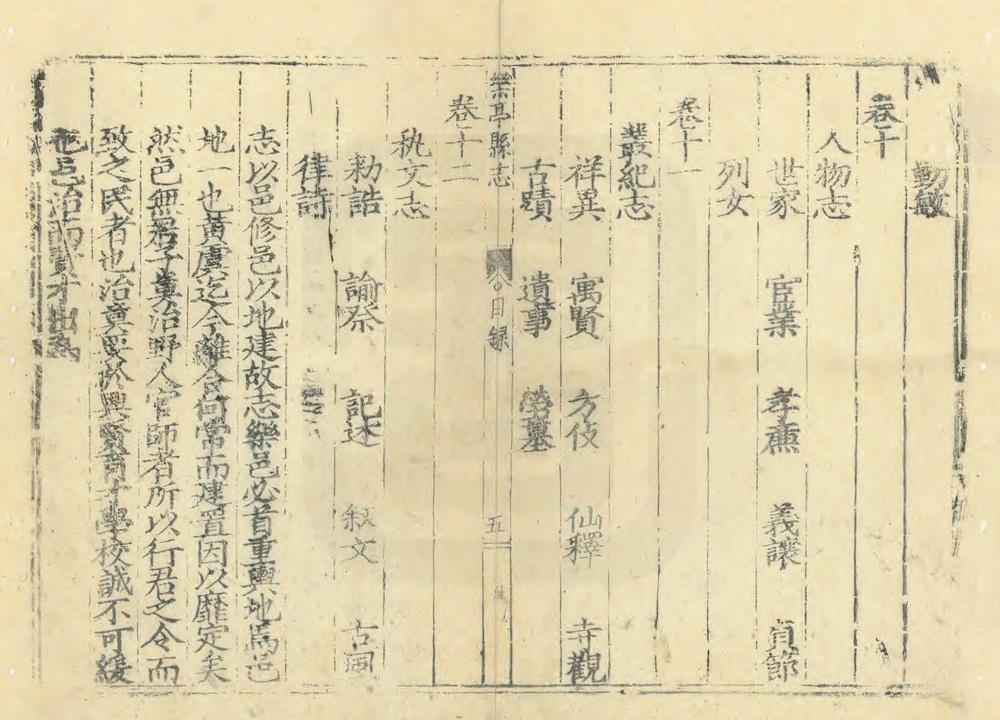 勳啟
卷十
人物志
世家 宦業 孝廉 義讓 貞節
列女
卷十一
叢紀志
祥異 寓賢 方伎 仙釋 寺觀
古蹟 遺事 塋墓
樂亭縣志 目録 五
卷十二
秇文志
勑誥 諭祭 記述 叙文 古風
律詩
志以邑修邑以地建故志樂邑必首重輿地焉邑
地一也黄虞迄今離合何常而建置因以靡定矣
然邑無君子莫治野人官師者所以行君之令而
致之民者也治莫要於興賢育才學校誠不可緩
也邑治而賢才出焉